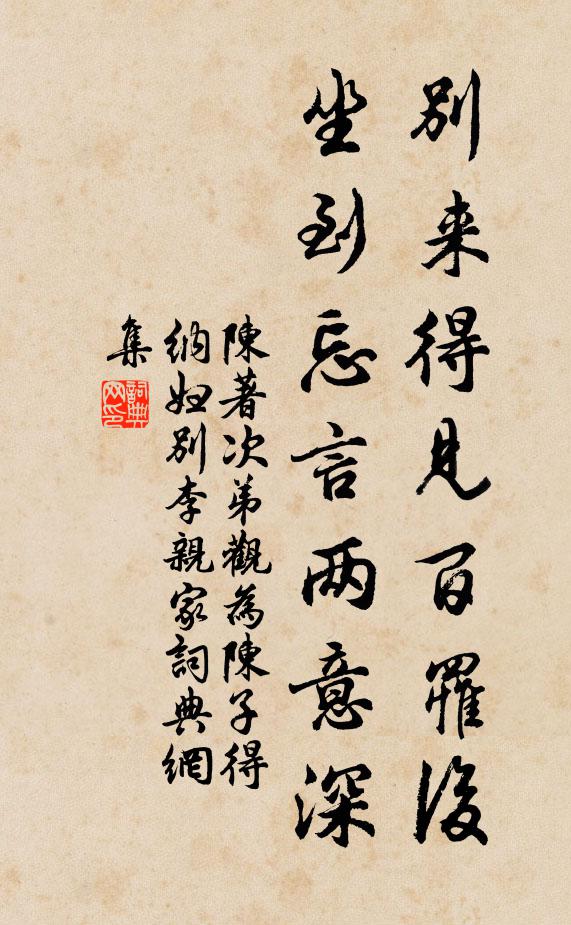 別来得見百罹後
坐到忘言两意深
陳著次弟觀為陳子得
納婦別李親家詞典網
集
詞典
网印